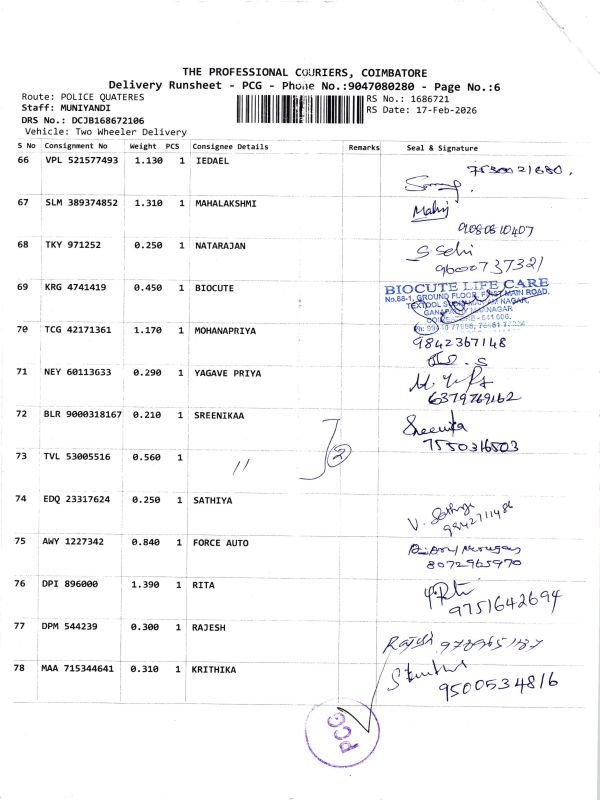 THE PROFESSIONAL COURIERS, COIMBATORE
Delivery Runsheet - PCG - Phone No.:9047080280 - Page No.:6
Route: POLICE QUATERES
RS No.: 1686721
Staff: MUNIYANDI
RS Date: 17-Feb-2026
DRS No.: DCJB168672106
Vehicle: Two Wheeler Delivery
S No Consignment No Weight PCS Consignee Details Remarks Seal & Signature
66 VPL 521577493 1.130 1 IEDAEL
67 SLM 389374852 1.310 1 MAHALAKSHMI
Mahi
9080810407
68 TKY 971252 0.250 1 NATARAJAN
S. Selvi
9600737321
69 KRG 4741419 0.450 1 BIOCUTE
BIOCUTE LIFE CARE
No.68-1, GROUND FLOOR, FIRST MAIN ROAD,
70 TCG 42171361 1.170 1 MOHANAPRIYA
9842367148
71 NEY 60113633 0.290 1 YAGAVE PRIYA
6379769162
72 BLR 9000318167 0.210 1 SREENIKAA
Sreenika
7550316503
73 TVL 53005516 0.560 1
"
2
74 EDQ 23317624 0.250 1 SATHIYA
V. Sathya
9942711486
75 AWY 1227342 0.840 1 FORCE AUTO
8072965970
76 DPI 896000 1.390 1 RITA
9751642694
77 DPM 544239 0.300 1 RAJESH
Rajesh
78 MAA 715344641 0.310 1 KRITHIKA
9500534816
PCG